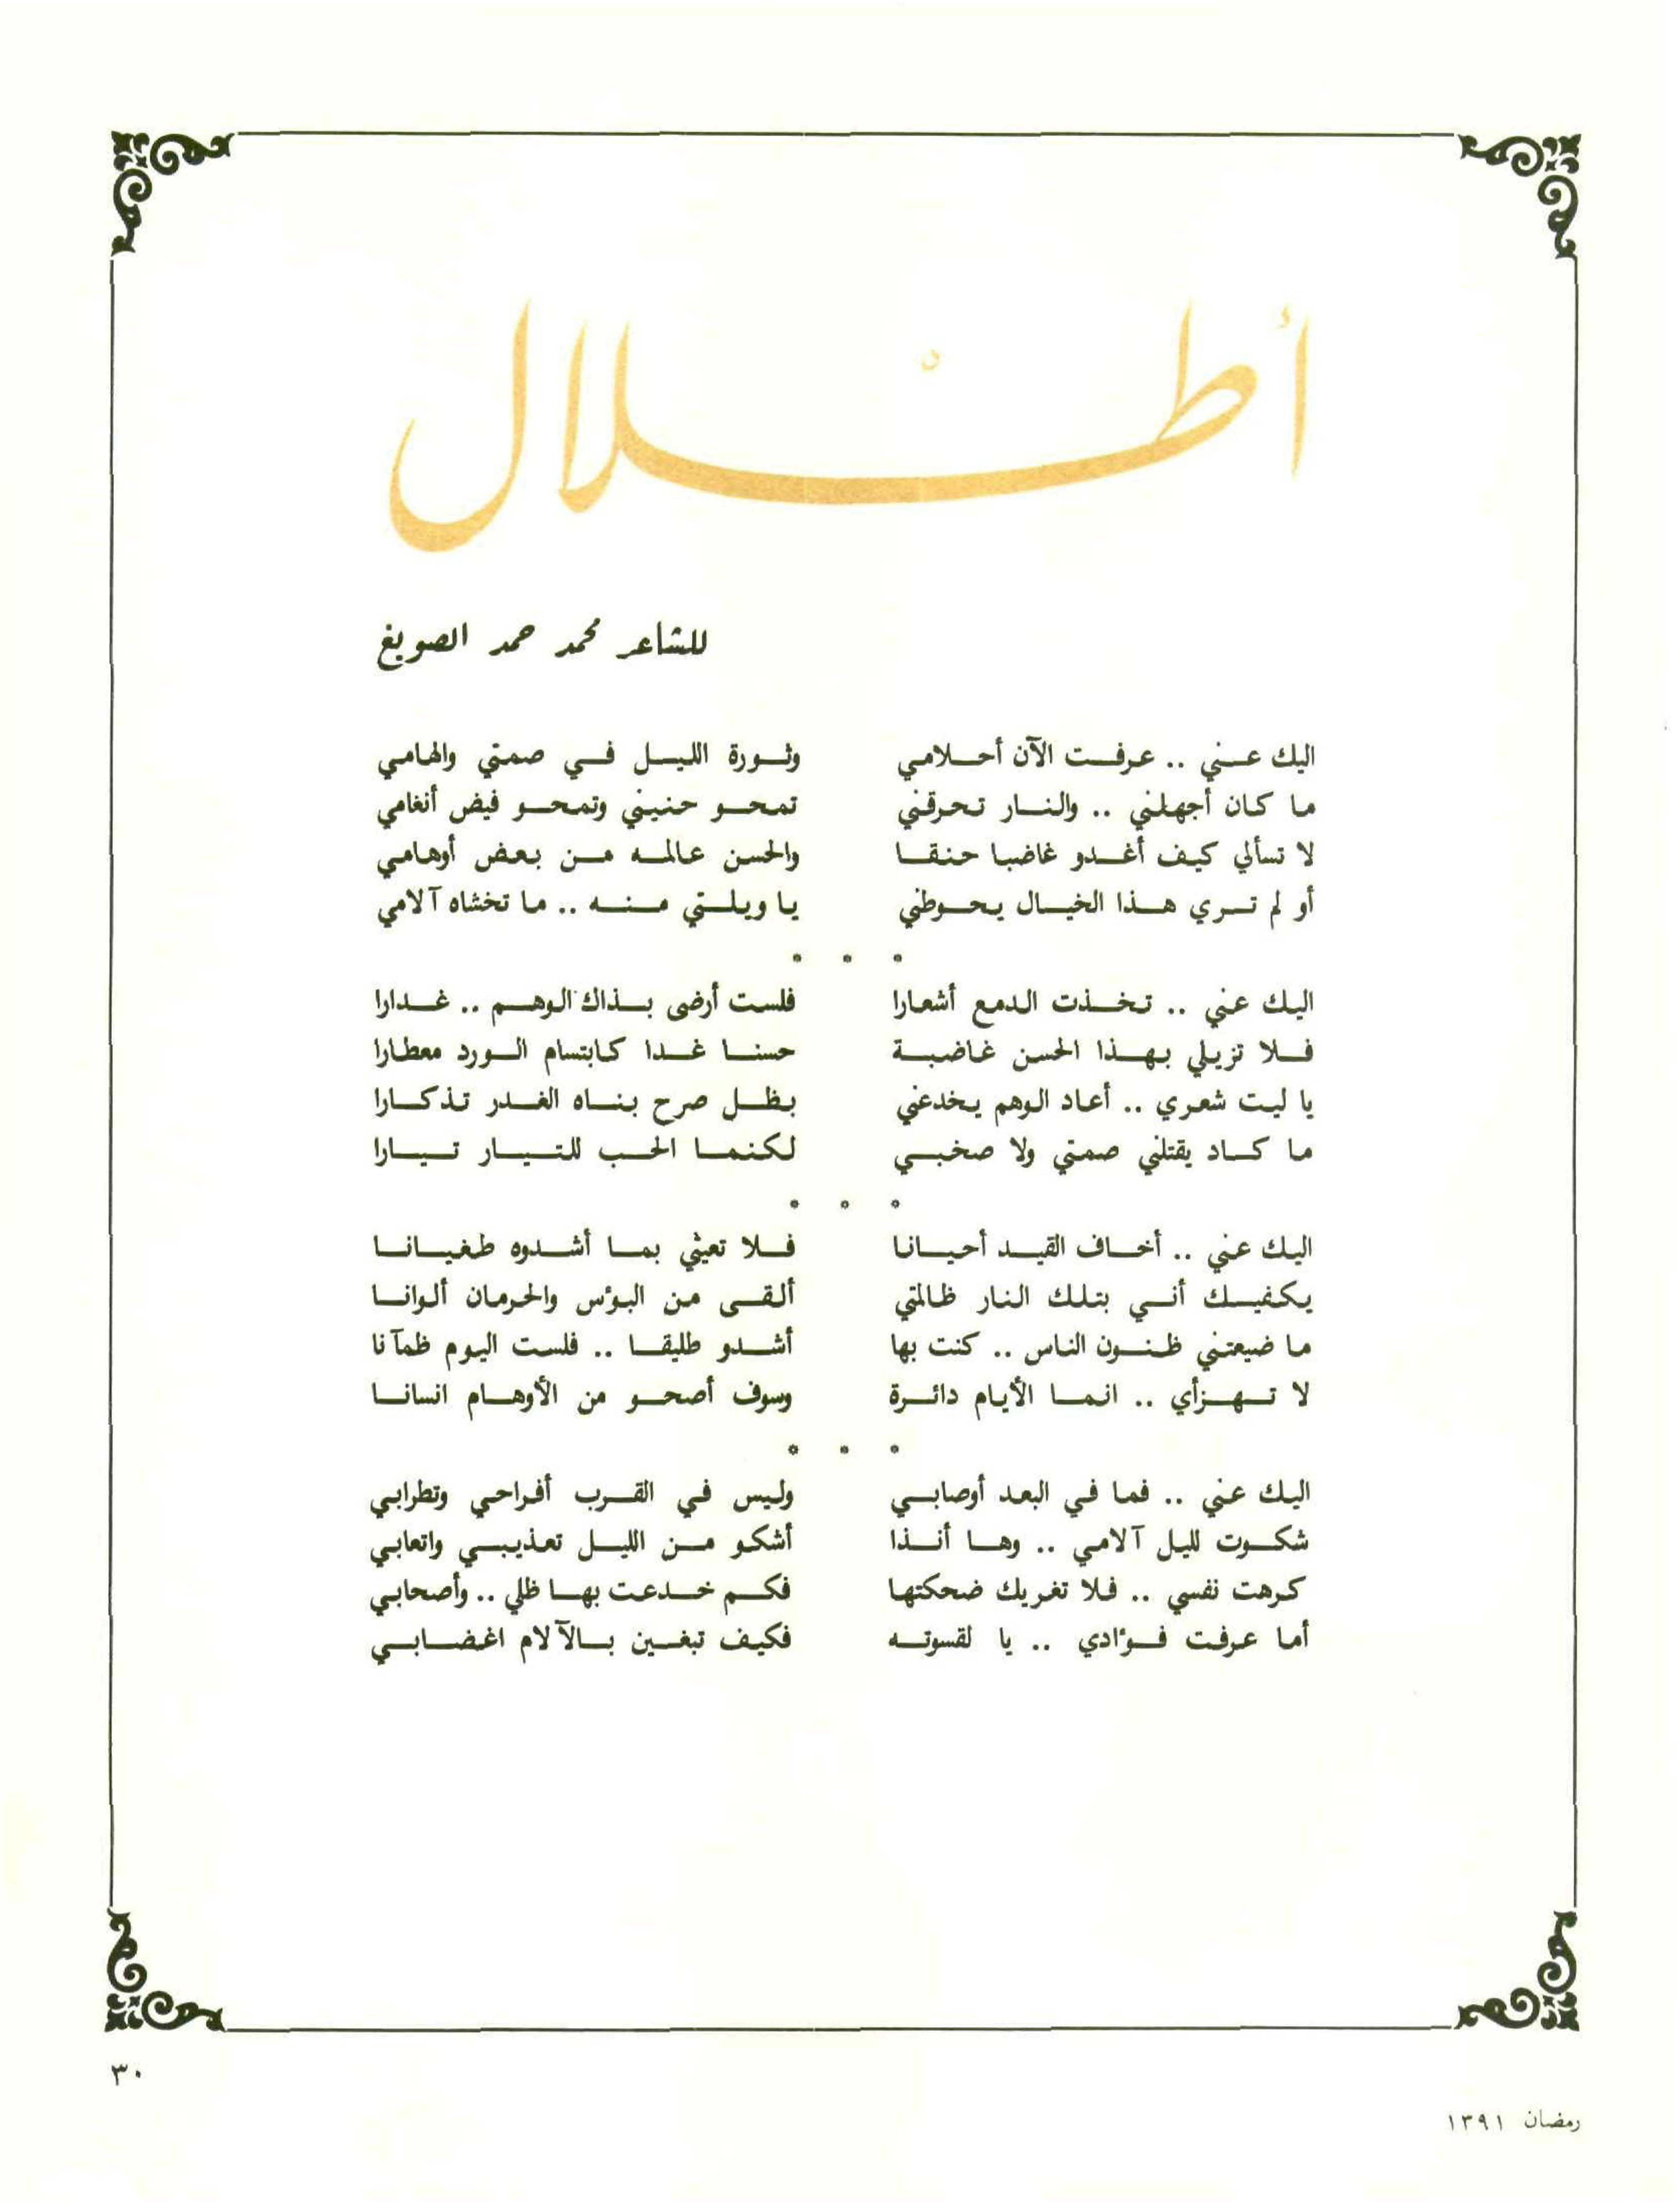 أطلال
للشاعر محمد حمد الصويغ
اليك عني .. عرفت الآن أحلامي وثورة الليل في صمتي والهامي
ما كان أجهلني .. والنار تحرقني تمحو حنيني وتمحو فيض أنغامي
لا تسألي كيف أغدو غاضبا حنقا والحسن عالمه من بعض أوهامي
أو لم تري هذا الخيال يحوطني يا ويلتي منه .. ما تخشاه آلامي
* * *
اليك عني .. تخذت الدمع أشعارا فلست أرضى بذاك الوهم .. غدارا
فلا تزيلي بهذا الحسن غاضبة حسنا غدا كابتسام الورد معطارا
يا ليت شعري .. أعاد الوهم يخدعني بظل صرح بناه الغدر تذكارا
ما كاد يقتلني صمتي ولا صخبي لكنما الحب للتيار تيارا
* * *
اليك عني .. أخاف القيد أحيانا فلا تعيثي بما أشدوه طغيانا
يكفيك أني بتلك النار ظالمتي ألقى من البؤس والحرمان ألوانا
ما ضيعتني ظنون الناس .. كنت بها أشدو طليقا .. فلست اليوم ظمآنا
لا تهزأي .. انما الأيام دائرة وسوف أصحو من الأوهام انسانا
* * *
اليك عني .. فما في البعد أوصابي وليس في القرب أفراحي وتطرابي
شكوت لليل آلامي .. وها أنذا أشكو من الليل تعذيبي واتعابي
كرهت نفسي .. فلا تغريك ضحكتها فكم خدعت بها ظلي .. وأصحابي
أما عرفت فؤادي .. يا لقسوته فكيف تبغين بالآلام اغضابي
٣٠
رمضان ١٣٩١